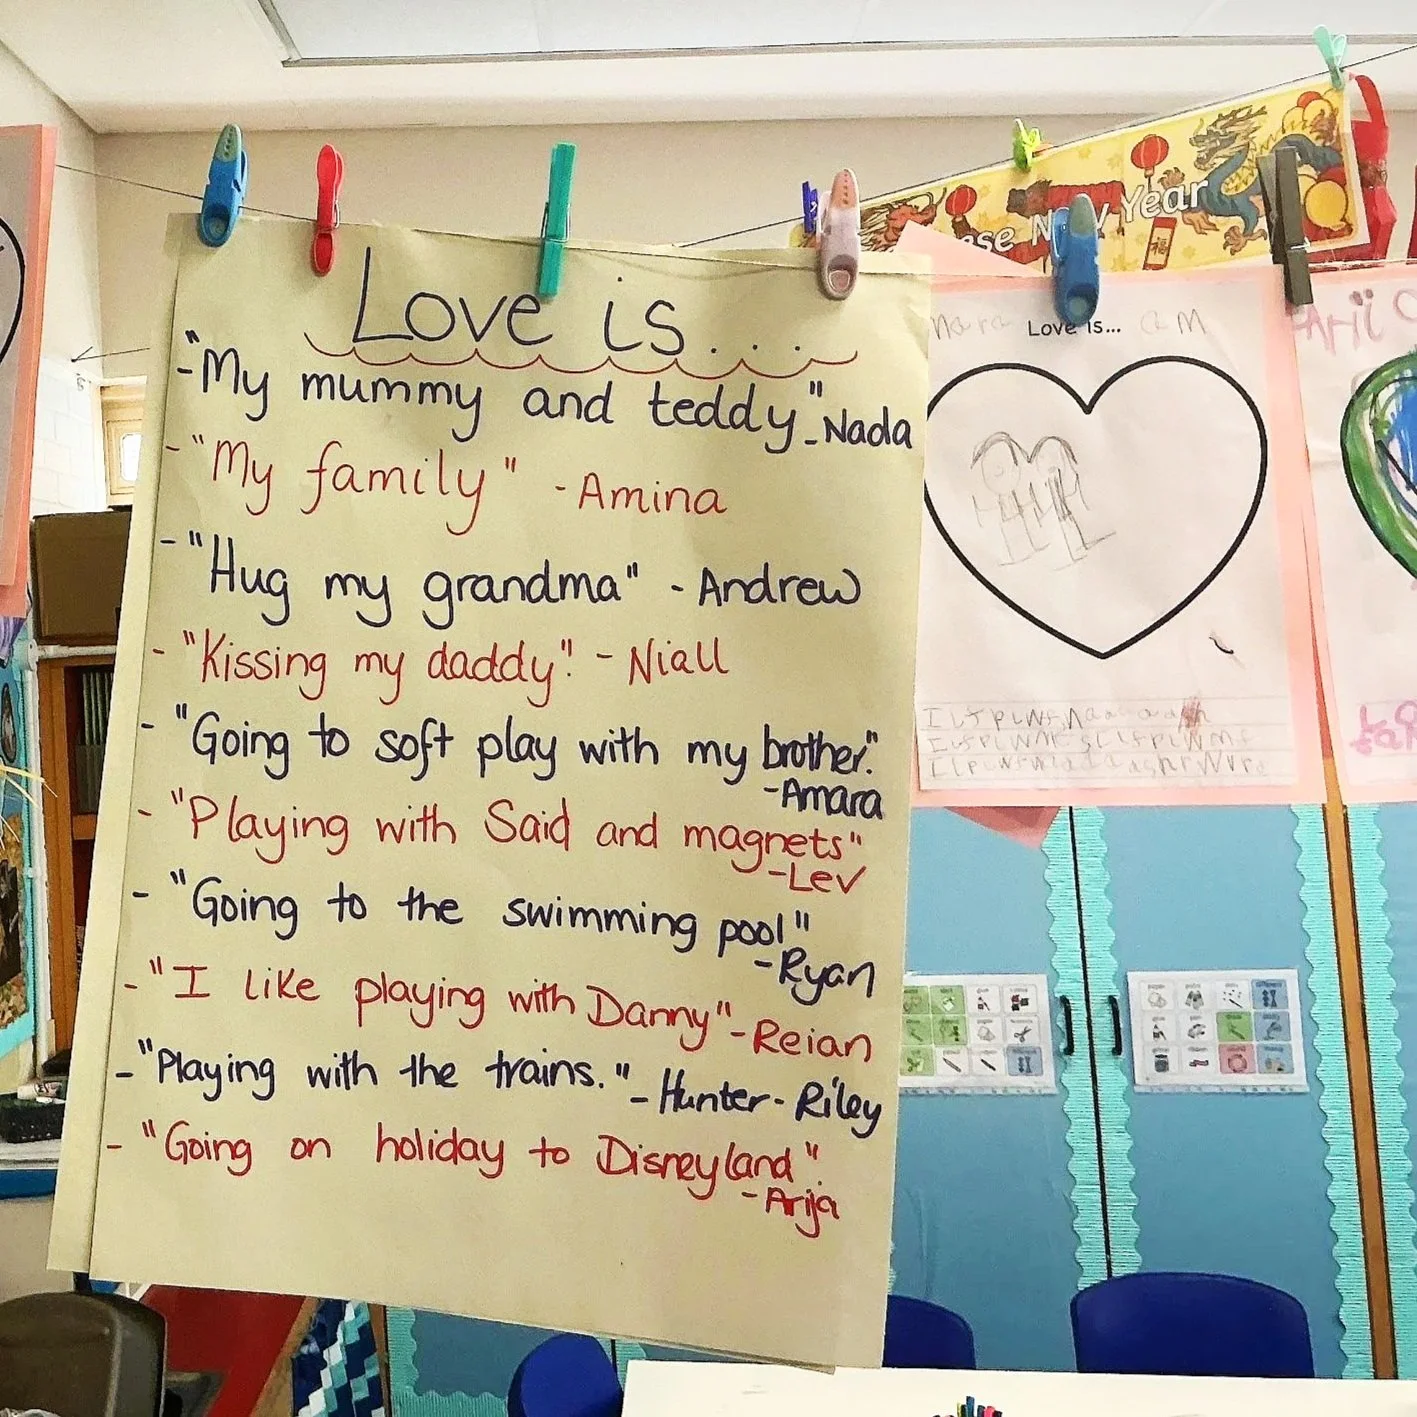 Love is...
-"My mummy and teddy"-Nada
-"My family" -Amina
-"Hug my grandma" -Andrew
-"Kissing my daddy". -Niall
-"Going to soft play with my brother."
-Amara
-"Playing with Said and magnets"
-Lev
-"Going to the swimming pool"
-Ryan
-"I like playing with Danny"-Reian
-"Playing with the trains." -Hunter-Riley
-"Going on holiday to Disneyland".
-Arija
New Year
Love is...